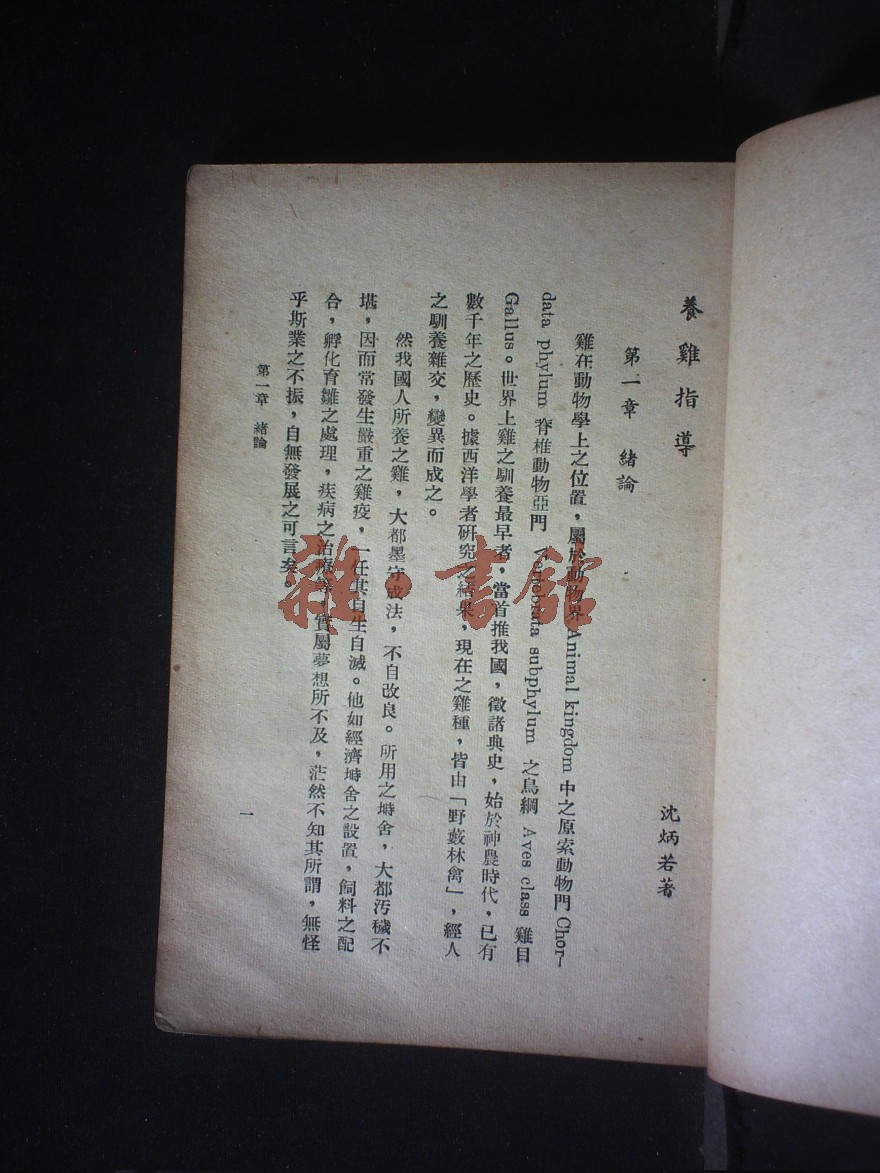 養雞指導
沈炳若著
第一章　緒論
雞在動物學上之位置，屬於動物界 Animal kingdom 中之原索動物門 Chor-
data phylum 脊椎動物亞門 Vertebrata subphylum 之鳥綱 Aves class 雞目
Gallus。世界上雞之馴養最早者，當首推我國，徵諸典史，始於神農時代，已有
數千年之歷史。據西洋學者研究之結果，現在之雞種，皆由「野藪林禽」，經人
之馴養雜交，變異而成之。
然我國人所養之雞，大都墨守成法，不自改良。所用之塒舍，大都汚穢不
堪，因而常發生嚴重之雞疫，一任其自生自滅。他如經濟塒舍之設置，飼料之配
合，孵化育雛之處理，疾病之治療等，實屬夢想所不及，茫然不知其所謂，無怪
乎斯業之不振，自無發展之可言矣。
第一章　緒論
一
雜·書館